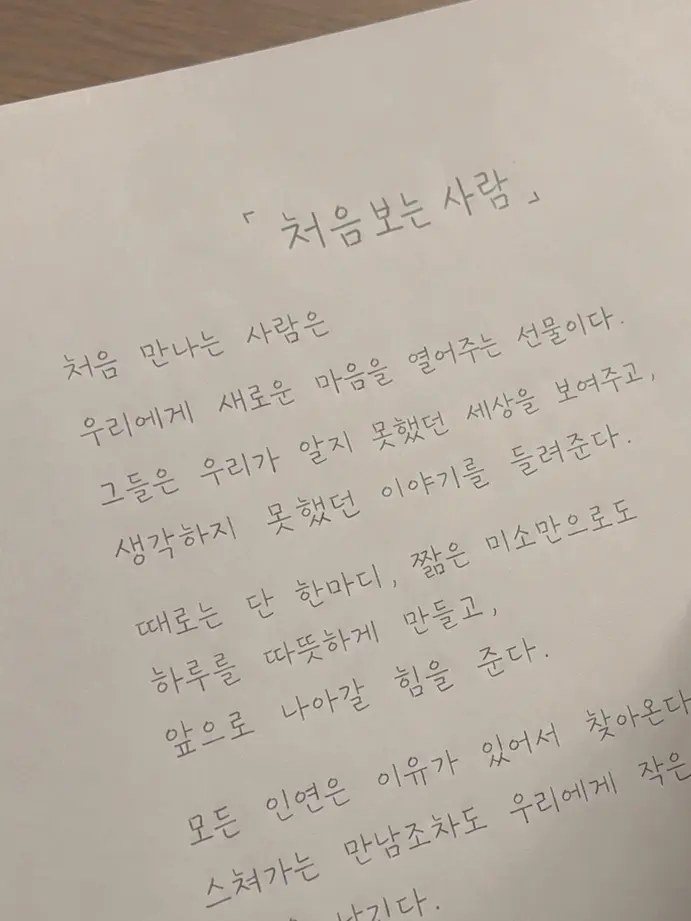 「처음보는 사람」
처음 만나는 사람은
우리에게 새로운 마음을 열어주는 선물이다.
그들은 우리가 알지 못했던 세상을 보여주고,
생각하지 못했던 이야기를 들려준다.
때로는 단 한마디, 짧은 미소만으로도
하루를 따뜻하게 만들고,
앞으로 나아갈 힘을 준다.
모든 인연은 이유가 있어서 찾아온다
스쳐가는 만남조차도 우리에게 작은
남긴다.